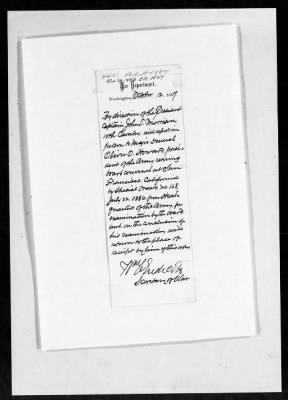 War Department,
Washington, October 12, 1887.
By direction of the President
Captain John T. Morrison
10th Cavalry, will report in
person to Major General
Oliver O. Howard, presi-
dent of the Army retiring
board convened at San
Francisco, California
by Special Orders No. 168,
July 22, 1886, from Head-
quarters of the Army, for
examination by the board
and on the conclusion of
his examination, will
return to the place of
receipt by him of this order
Secretary of War